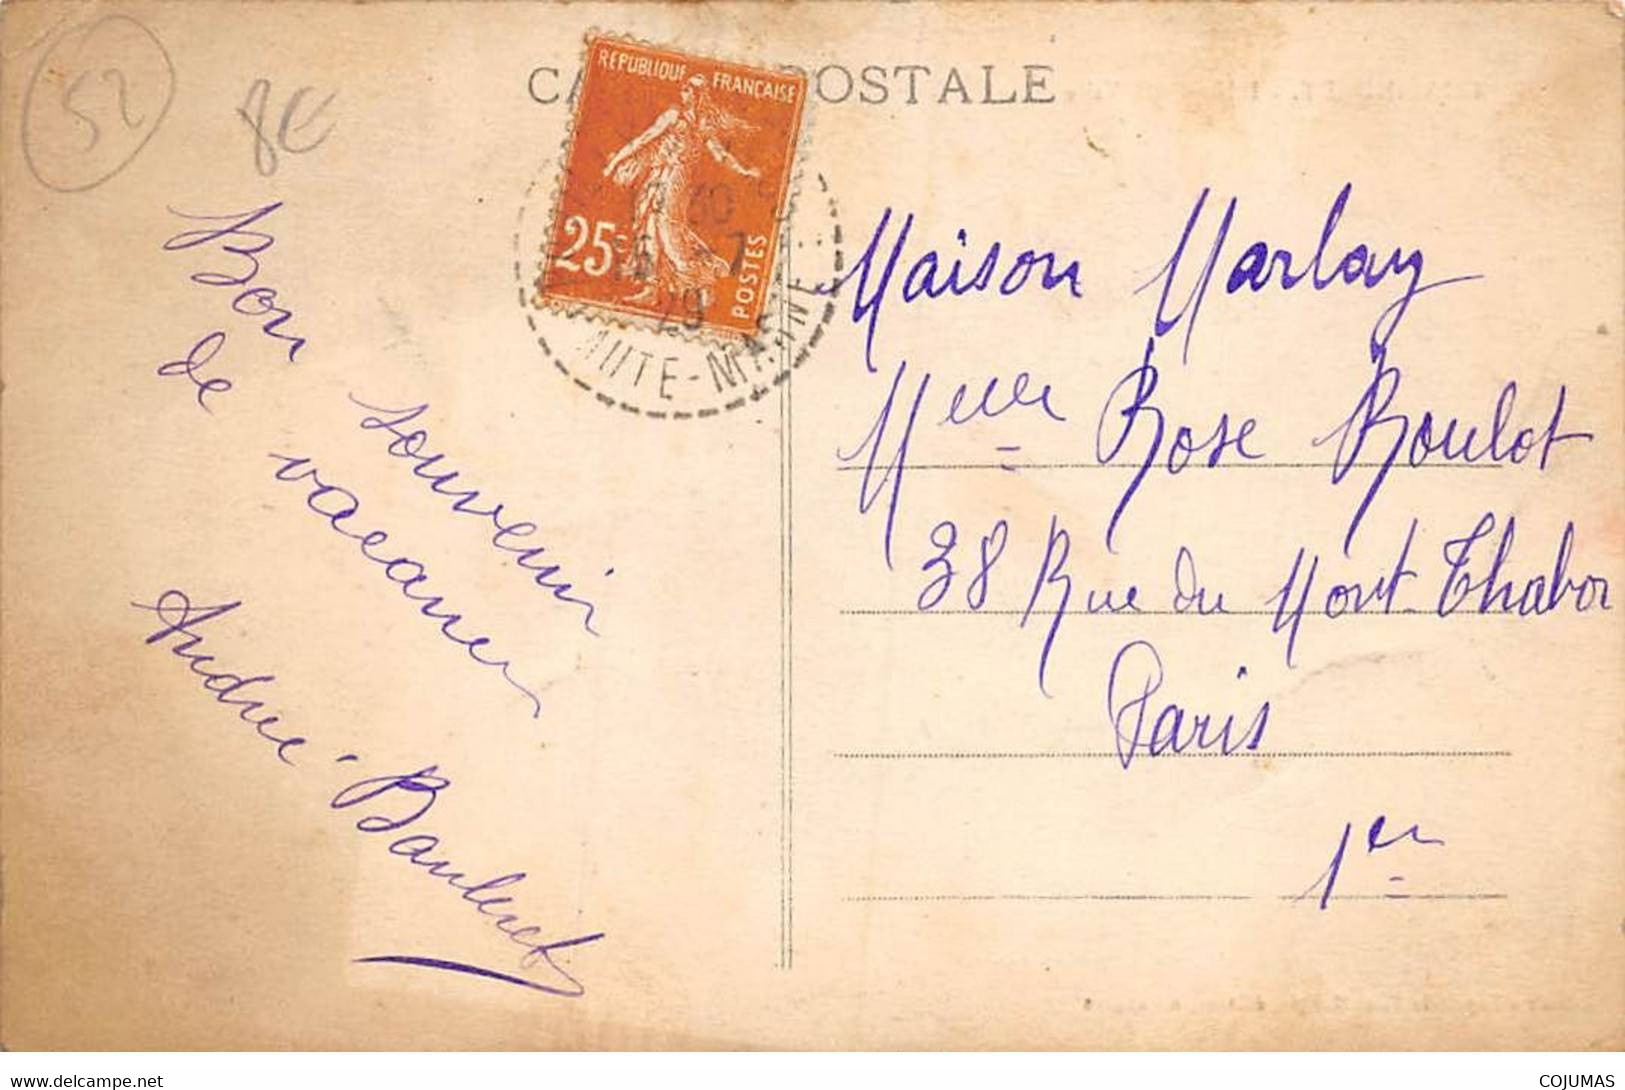 52
8€
CA POSTALE
REPUBLIQUE FRANÇAISE
25c
POSTES
17 30
16 -7
29
HAUTE-MARNE
Bon souvenir
de vacances
Andrée Baulnet
Maison Marlay
Melle Rose Roulot
38 Rue du Mont-Thabor
Paris
1er
www.delcampe.net
COJUMAS